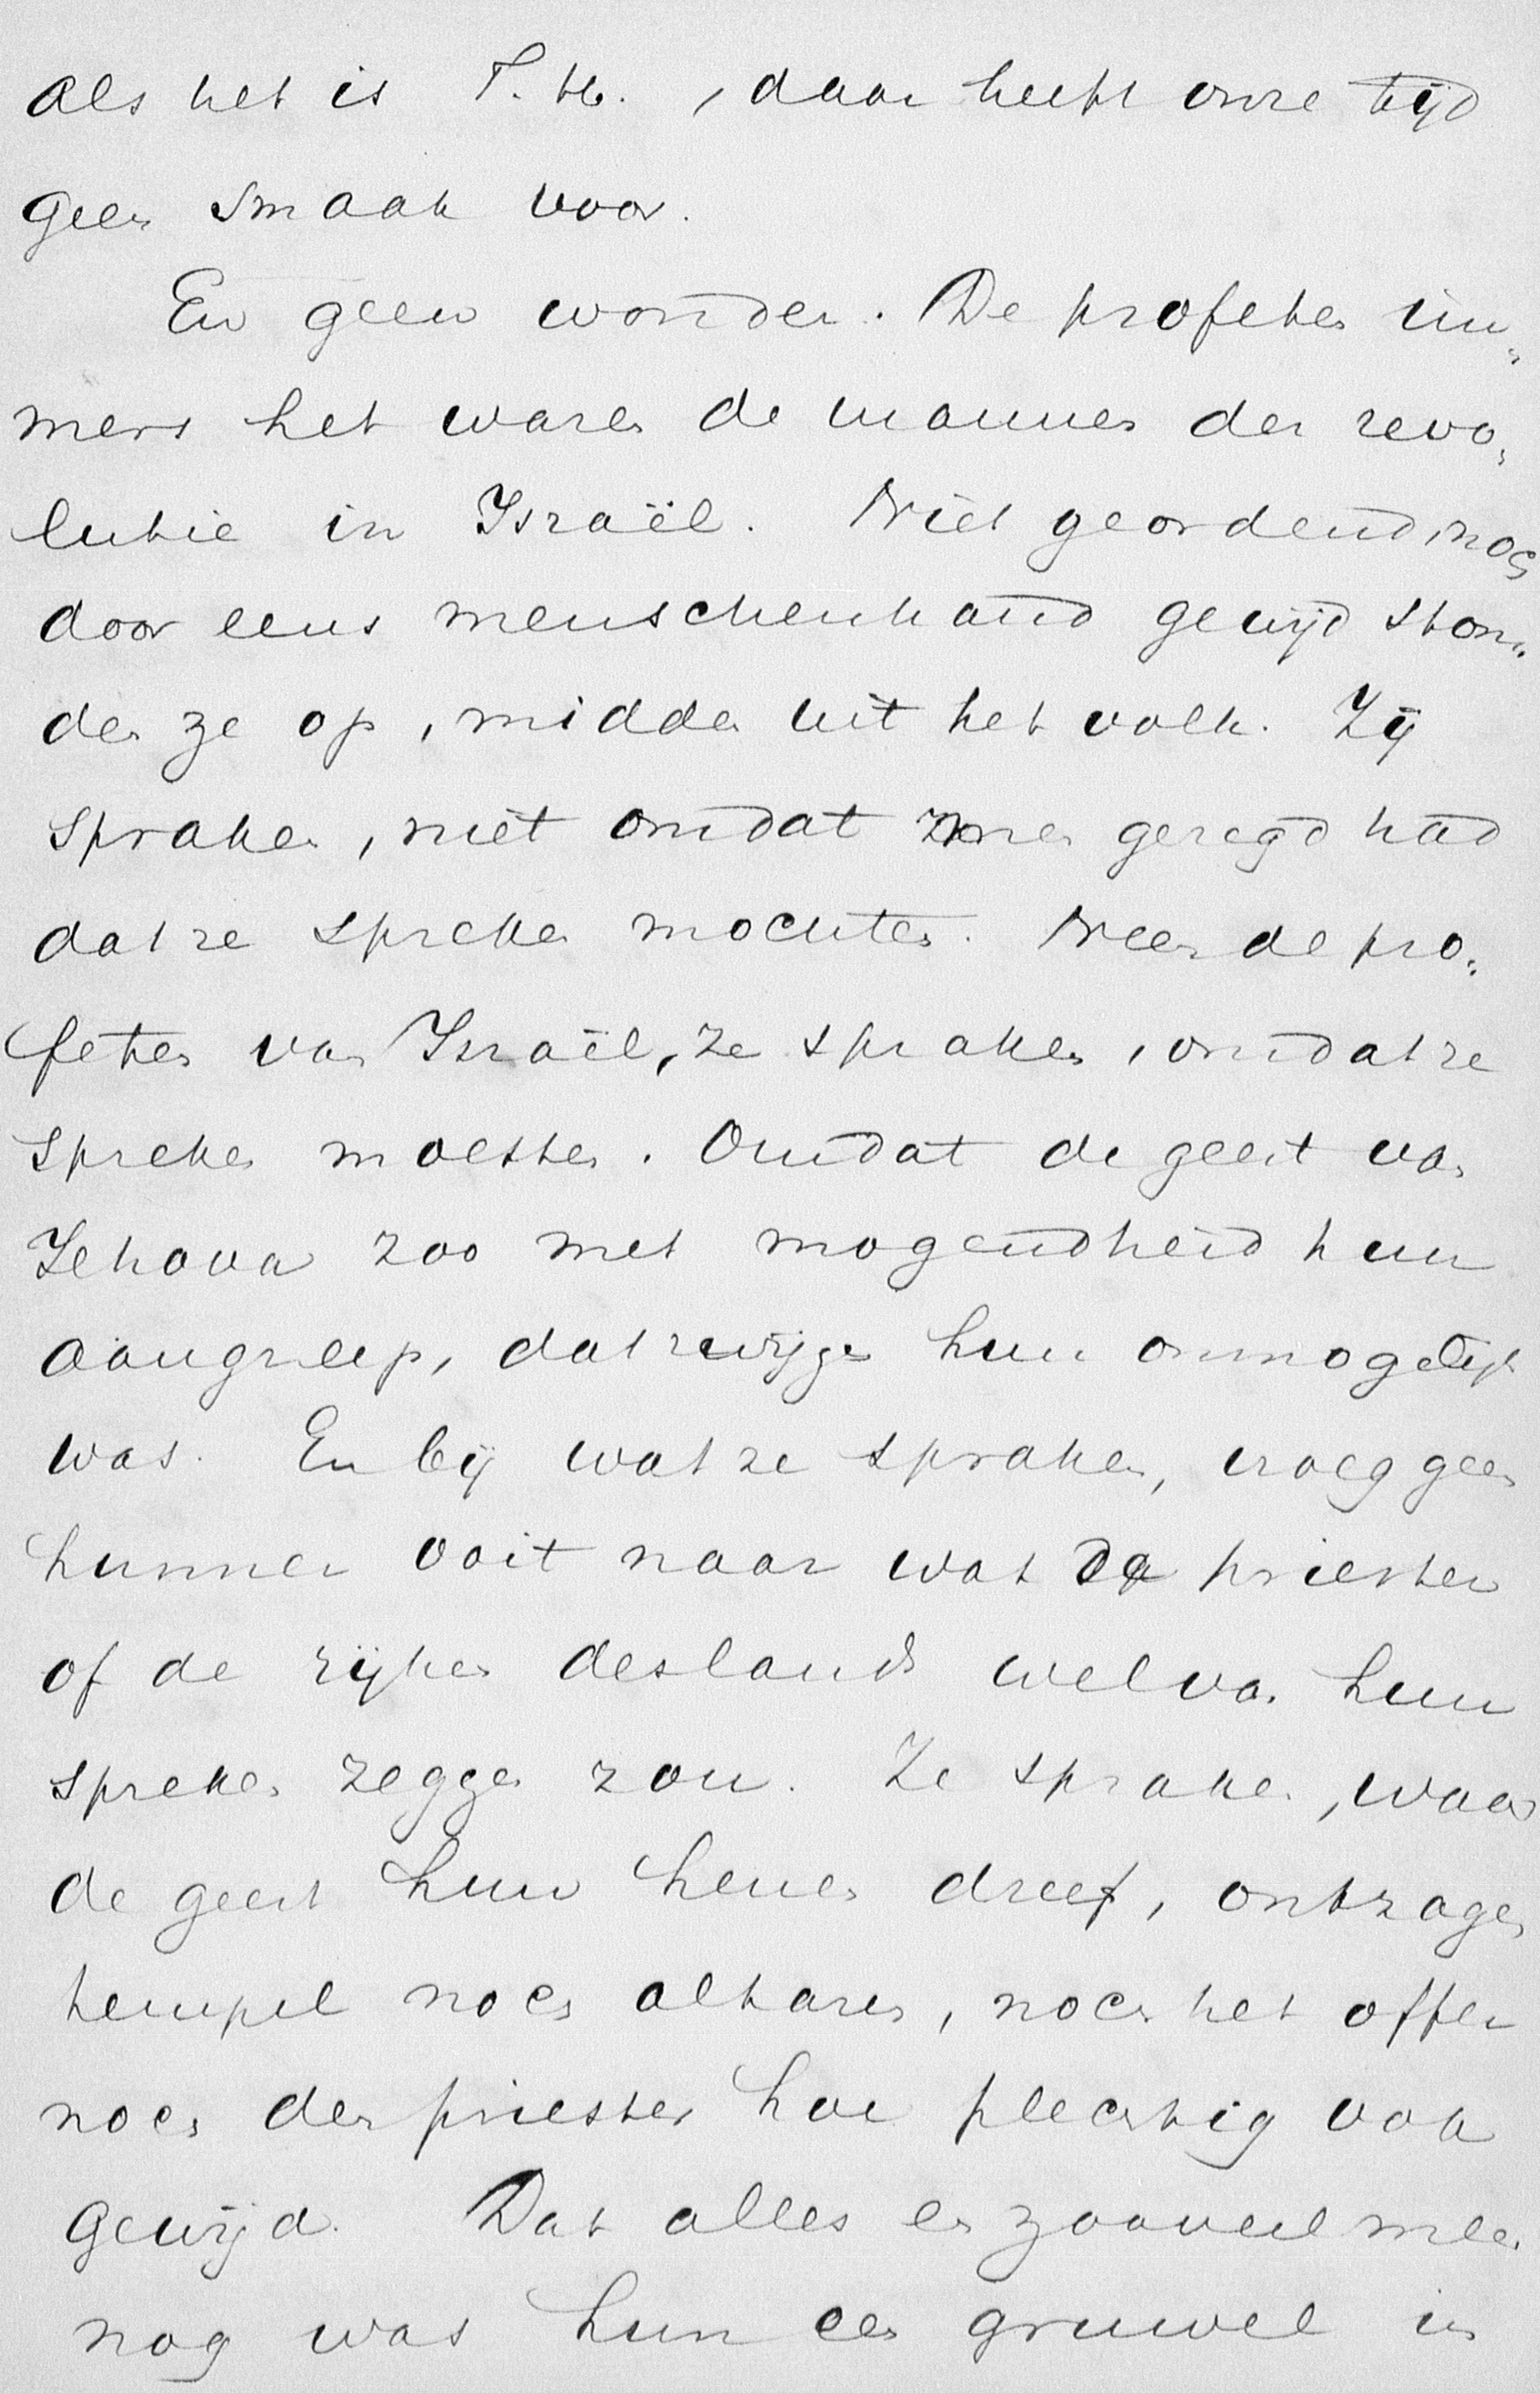 als het is T. H. , daar heeft onze tijd
geen smaak voor.
En geen wonder. De profeten im„
mers het waren de mannen der revo„
lutie in Israël. Niet geordend, noch
door eens menschenhand gewijd ston„
den ze op, midden uit het volk. Zij
spraken, niet omdat men gezegd had
dat ze spreken mochten. Neen de pro„
feten van Israël, ze spraken, omdat ze
spreken moesten. Omdat de geest van
Jehova zoo met mogendheid hun
aangreep, dat zwijgen hun onmogelijk
was. En bij wat ze spraken, vroeg geen
hunner ooit naar wat de priester
of de rijken des lands wel van hun
spreken zeggen zou. Ze spraken, waar
de geest hun henen dreef, ontzagen
tempel noch altaren, noch het offer
noch den priester hoe plechtig ook
gewijd. Dat alles en zooveel meer
nog was hun een gruwel in